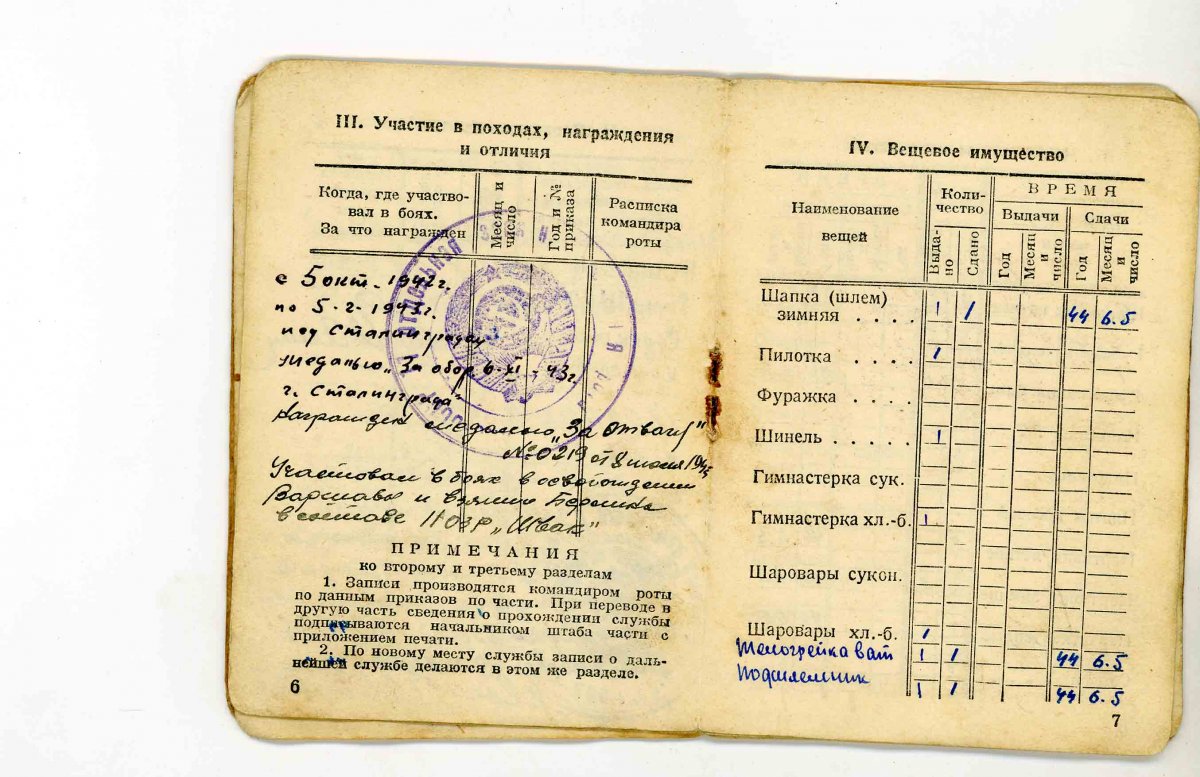 III. Участие в походах, награждения
и отличия
Когда, где участво-
вал в боях.
За что награжден
Месяц и
число
Год и №
приказа
Расписка
командира
роты
ОТДЕЛЬНАЯ
с 5 окт. 1942 г.
по 5-2-1943 г.
под Сталинградом
медалью „За обор 6-XI-43 г.
г. Сталинграда"
Награжден медалью „За отвагу"
№ 0219 от 8 июня 1945
Участвовал в боях в освобождении
Варшавы и взятии Берлина
в составе
ПРИМЕЧАНИЯ
ко второму и третьему разделам
1. Записи производятся командиром роты
по данным приказов по части. При переводе в
другую часть сведения о прохождении службы
подписываются начальником штаба части с
приложением печати.
2. По новому месту службы записи о даль-
нейшей службе делаются в этом же разделе.
6
IV. Вещевое имущество
Наименование
вещей
Коли-
чество
ВРЕМЯ
Выдачи
Сдачи
Выда-
но
Сдано
Год
Месяц
и
число
Год
Месяц
и
число
Шапка (шлем)
зимняя . . . . 1 1 44 6.5
Пилотка . . . . 1
Фуражка . . . .
Шинель . . . . . 1
Гимнастерка сук.
Гимнастерка хл.-б. 1
Шаровары сукон.
Шаровары хл.-б. 1
Телогрейка ват 1 1 44 6.5
Подшлемник
1 1 44 6.5
7